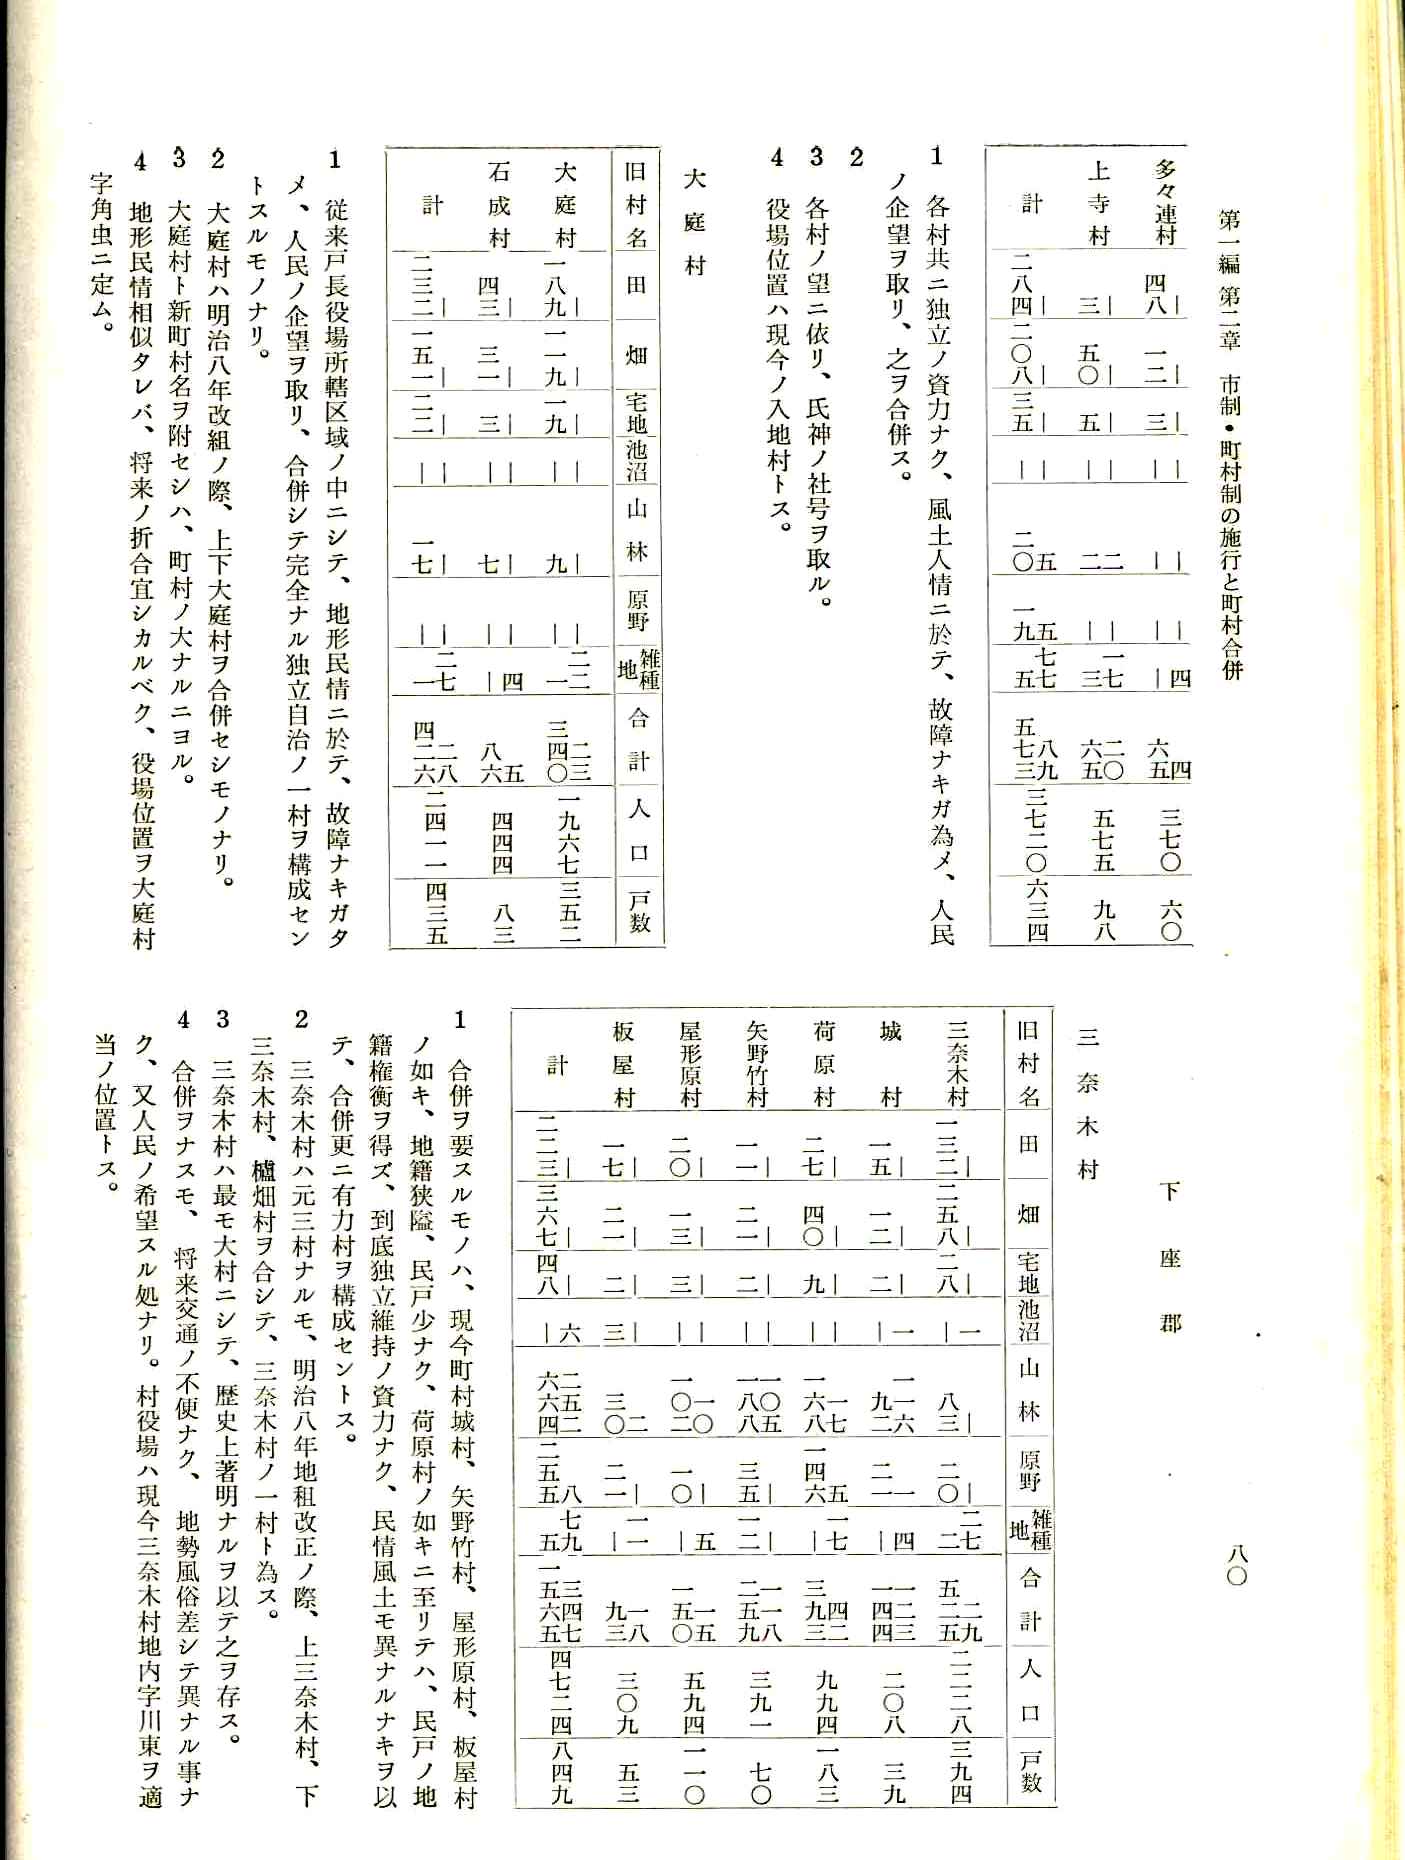 第一編 第二章　市制・町村制の施行と町村合併
八〇
多々連村 ｜ 四八 ｜ 一二 ｜ 三 ｜ ｜ ｜ ｜ ｜ ｜ 四 ｜ 四 六五 三七〇 六〇
上寺村 ｜ 三 ｜ 五〇 ｜ 五 ｜ ｜ 二 二 ｜ ｜ 一七 三 二〇 六五 五七五 九八
計 ｜ 二八四 ｜ 二〇八 ｜ 三五 ｜ ｜ 五 二〇 五 一九 七七 五 八九 五七三 三七二〇 六三四
1　各村共ニ独立ノ資力ナク、風土人情ニ於テ、故障ナキガ為メ、人民
ノ企望ヲ取リ、之ヲ合併ス。
2
3　各村ノ望ニ依リ、氏神ノ社号ヲ取ル。
4　役場位置ハ現今ノ入地村トス。
大庭村
旧村名 田 畑 宅地 池沼 山林 原野 雑種地 合計 人口 戸数
大庭村 ｜ 一八九 ｜ 一一九 ｜ 一九 ｜ ｜ ｜ 九 ｜ ｜ 二二 一 二三 三四〇 一九六七 三五二
石成村 ｜ 四三 ｜ 三一 ｜ 三 ｜ ｜ ｜ 七 ｜ ｜ 四 ｜ 五 八六 四四四 八三
計 ｜ 二三二 ｜ 一五一 ｜ 二二 ｜ ｜ ｜ 一七 ｜ ｜ 二七 一 二八 四二六 二四一一 四三五
1　従来戸長役場所轄区域ノ中ニシテ、地形民情ニ於テ、故障ナキガタ
メ、人民ノ企望ヲ取リ、合併シテ完全ナル独立自治ノ一村ヲ構成セン
トスルモノナリ。
2　大庭村ハ明治八年改組ノ際、上下大庭村ヲ合併セシモノナリ。
3　大庭村ト新町村名ヲ附セシハ、町村ノ大ナルニヨル。
4　地形民情相似タレバ、将来ノ折合宜シカルベク、役場位置ヲ大庭村
字角虫ニ定ム。
下座郡
三奈木村
旧村名 田 畑 宅地 池沼 山林 原野 雑種地 合計 人口 戸数
三奈木村 ｜ 一三二 ｜ 二五八 ｜ 二八 一 ｜ ｜ 八三 ｜ 二〇 二七 二 二九 五二五 二二二八 三九四
城村 ｜ 一五 ｜ 一二 ｜ 二 一 ｜ 一一六 九二 一 二一 四 ｜ 一二三 一四四 二〇八 三九
荷原村 ｜ 二七 ｜ 四〇 ｜ 九 ｜ ｜ 一七 一六八 五 一四六 一七 ｜ 四二 三九三 九九四 一八三
矢野竹村 ｜ 一一 ｜ 二一 ｜ 二 ｜ ｜ 一〇五 一八八 ｜ 三五 一｜ 二 一一八 二五九 三九一 七〇
屋形原村 ｜ 二〇 ｜ 一三 ｜ 三 ｜ ｜ 一〇 一〇二 ｜ 一〇 五 ｜ 一五 一五〇 五九四 一一〇
板屋村 ｜ 一七 ｜ 二一 ｜ 二 ｜ 三 二 三〇 ｜ 二一 一一 ｜ 一八 九三 三〇九 五三
計 ｜ 二二三 ｜ 三六七 ｜ 四八 六 ｜ 二五二 六六四 八 二五五 七九 五 三四七 一五六五 四七二四 八四九
1　合併ヲ要スルモノハ、現今町村城村、矢野竹村、屋形原村、板屋村
ノ如キ、地籍狭隘、民戸少ナク、荷原村ノ如キニ至リテハ、民戸ノ地
籍権衡ヲ得ズ、到底独立維持ノ資力ナク、民情風土モ異ナルナキヲ以
テ、合併更ニ有力村ヲ構成セントス。
2　三奈木村ハ元三村ナルモ、明治八年地租改正ノ際、上三奈木村、下
三奈木村、櫨畑村ヲ合シテ、三奈木村ノ一村ト為ス。
3　三奈木村ハ最モ大村ニシテ、歴史上著明ナルヲ以テ之ヲ存ス。
4　合併ヲナスモ、将来交通ノ不便ナク、地勢風俗差シテ異ナル事ナ
ク、又人民ノ希望スル処ナリ。村役場ハ現今三奈木村地内字川東ヲ適
当ノ位置トス。